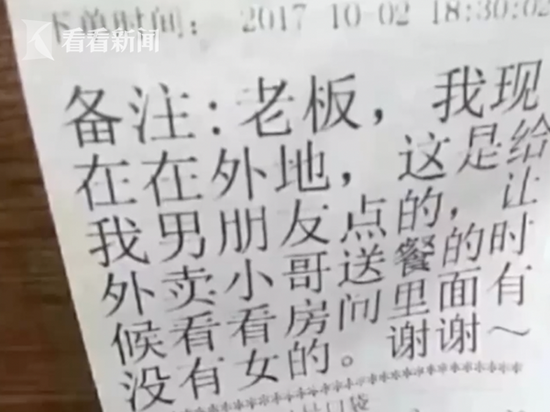 看看新闻
下单时间： 2017-10-02 18:30:02
备注：老板，我现
在在外地，这是给
我男朋友点的，让
外卖小哥送餐的时
候看看房间里面有
没有女的。谢谢～
********************
口袋